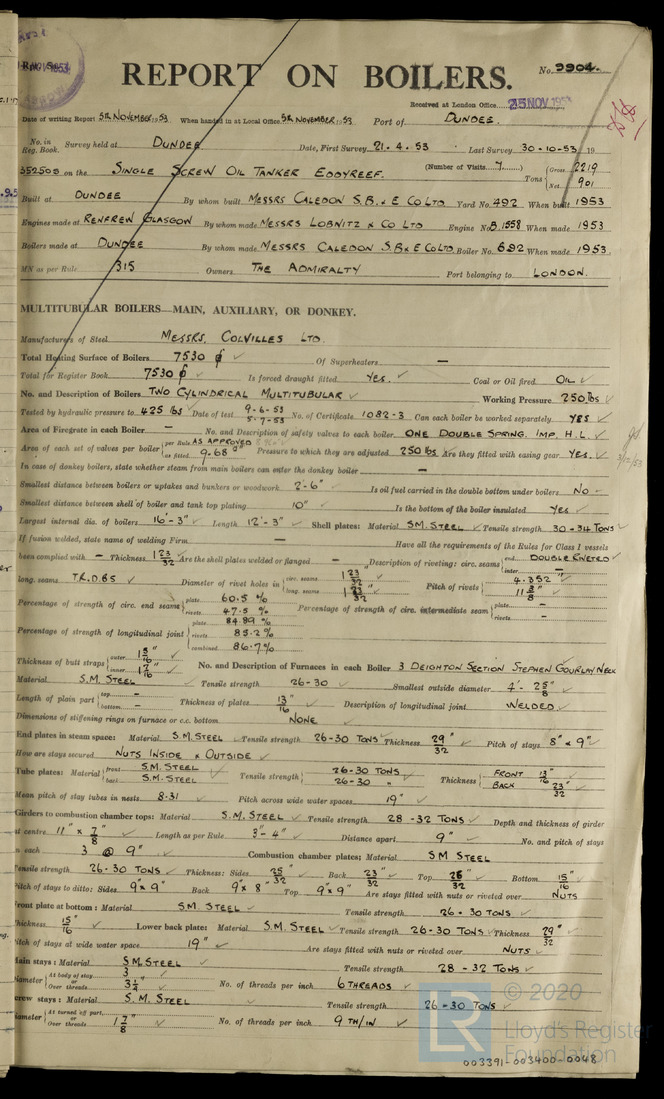 REPORT ON BOILERS.
No. 9904.
Received at London Office 25 NOV 195
Date of writing Report 5th NOVEMBER 1953 When handed in at Local Office 5th NOVEMBER 1953 Port of DUNDEE.
No. in Reg. Book. Survey held at DUNDEE Date, First Survey 21.4.53 Last Survey 30-10-53 19
on the SINGLE SCREW OIL TANKER EDDYREEF. (Number of Visits 7) Tons Gross 2219 Net 901
Built at DUNDEE By whom built MESSRS CALEDON S.B. & E CO LTD. Yard No. 492 When built 1953
Engines made at RENFREW GLASGOW By whom made MESSRS LOBNITZ & CO LTD Engine No. B.1558 When made 1953
Boilers made at DUNDEE By whom made MESSRS CALEDON S.B & E CO LTD. Boiler No. 692 When made 1953.
MN as per Rule 315 Owners THE ADMIRALTY Port belonging to LONDON.
MULTITUBULAR BOILERS—MAIN, AUXILIARY, OR DONKEY.
Manufacturers of Steel MESSRS. COLVILLES LTD.
Total Heating Surface of Boilers 7530 ✓ Of Superheaters —
Total for Register Book 7530 ✓ Is forced draught fitted YES. ✓ Coal or Oil fired OIL ✓
No. and Description of Boilers TWO CYLINDRICAL MULTITUBULAR ✓ Working Pressure 250 lbs ✓
Tested by hydraulic pressure to 425 lbs ✓ Date of test 9-6-53 5-7-53 No. of Certificate 1082-3 Can each boiler be worked separately YES ✓
Area of Firegrate in each Boiler — No. and Description of safety valves to each boiler ONE DOUBLE SPRING. IMP. H.L. ✓
Area of each set of valves per boiler per Rule AS APPROVED as fitted 9.68 ✓ Pressure to which they are adjusted 250 lbs Are they fitted with easing gear YES. ✓
In case of donkey boilers, state whether steam from main boilers can enter the donkey boiler —
Smallest distance between boilers or uptakes and bunkers or woodwork 2'-6" Is oil fuel carried in the double bottom under boilers NO —
Smallest distance between shell of boiler and tank top plating 10" Is the bottom of the boiler insulated YES ✓
Largest internal dia. of boilers 16'-3" ✓ Length 12'-3" ✓ Shell plates: Material S.M. STEEL ✓ Tensile strength 30-34 TONS ✓
If fusion welded, state name of welding Firm — Have all the requirements of the Rules for Class I vessels
been complied with — Thickness 1 23/32 Are the shell plates welded or flanged — Description of riveting: circ. seams end DOUBLE RIVETED inter. —
long. seams TR.D.BS ✓ Diameter of rivet holes in circ. seams 1 23/32 long. seams 1 23/32 Pitch of rivets 4.352" 11 5/8"
Percentage of strength of circ. end seams plate 60.5 % rivets 47.5 % Percentage of strength of circ. intermediate seam plate — rivets —
Percentage of strength of longitudinal joint plate 84.89 % rivets 85.2 % combined 86.7 %
Thickness of butt straps outer 1 5/16" inner 1 7/16" No. and Description of Furnaces in each Boiler 3 DEIGHTON SECTION STEPHEN GOURLAY NECK
Material S.M. STEEL Tensile strength 26-30 Smallest outside diameter 4'-2 5/8"
Length of plain part top — bottom — Thickness of plates 13/16" ✓ Description of longitudinal joint WELDED. ✓
Dimensions of stiffening rings on furnace or c.c. bottom NONE ✓
End plates in steam space: Material S.M. STEEL ✓ Tensile strength 26-30 TONS ✓ Thickness 29/32" Pitch of stays 8" x 9" ✓
How are stays secured NUTS INSIDE & OUTSIDE ✓
Tube plates: Material front S.M. STEEL back S.M. STEEL Tensile strength 26-30 TONS 26-30 " Thickness FRONT 13/16" BACK 23/32"
Mean pitch of stay tubes in nests 8.31 ✓ Pitch across wide water spaces 19" ✓
Girders to combustion chamber tops: Material S.M. STEEL ✓ Tensile strength 28-32 TONS ✓ Depth and thickness of girder
at centre 11" x 7/8" Length as per Rule 3'-4" ✓ Distance apart 9" ✓ No. and pitch of stays
in each 3 @ 9" ✓ Combustion chamber plates; Material S M STEEL
Tensile strength 26-30 TONS ✓ Thickness: Sides 25/32" Back 23/32" Top 25/32" Bottom 15/16"
Pitch of stays to ditto: Sides 9" x 9" Back 9" x 8" Top 9" x 9" Are stays fitted with nuts or riveted over NUTS
Front plate at bottom: Material S.M. STEEL Tensile strength 26-30 TONS ✓
Thickness 15/16" ✓ Lower back plate: Material S.M. STEEL ✓ Tensile strength 26-30 TONS ✓ Thickness 29/32"
Pitch of stays at wide water space 19" ✓ Are stays fitted with nuts or riveted over NUTS ✓
Main stays: Material S.M. STEEL ✓ Tensile strength 28-32 TONS ✓
Diameter At body of stay 3 or Over threads 3 1/4" ✓ No. of threads per inch 6 THREADS ✓
Screw stays: Material S.M. STEEL ✓ Tensile strength 26-30 TONS ✓
Diameter At turned off part, or Over threads 1 7/8" ✓ No. of threads per inch 9 TH/IN ✓
© 2020
LR Lloyd's Register
Foundation
003391-003400-0048